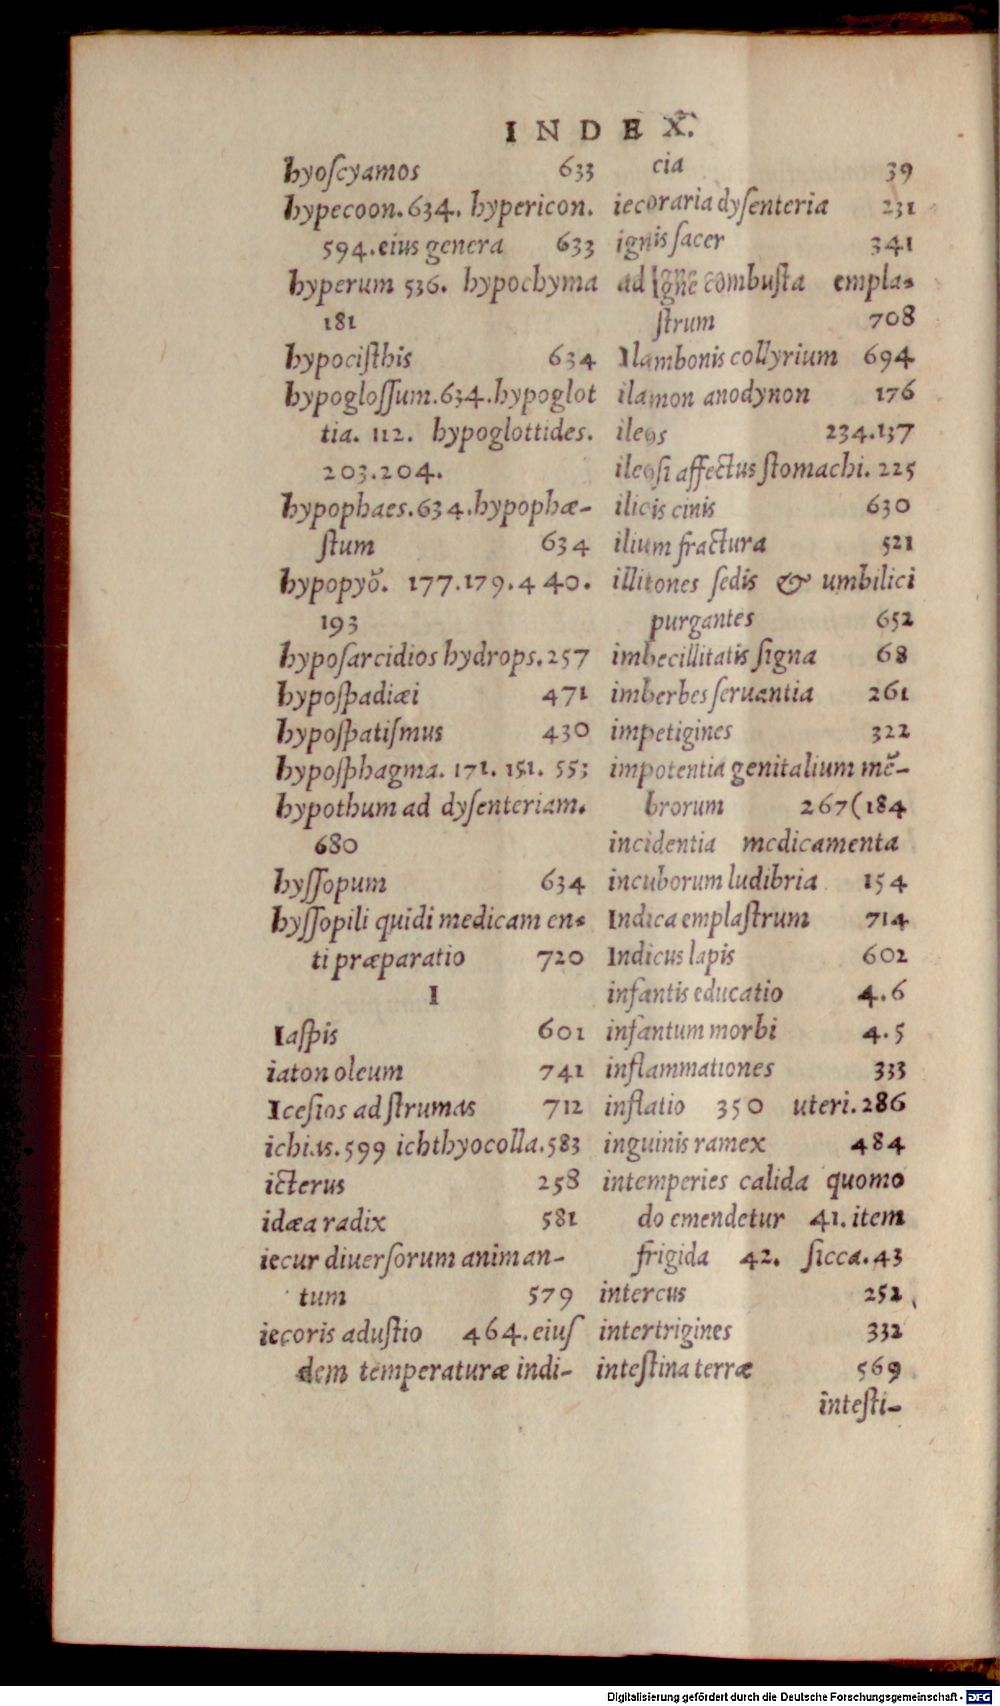 INDEX.
hyoſcyamos 633
hypecoon. 634. hypericon.
594. eius genera 633
hyperum 536. hypochyma
181
hypociſthis 634
hypogloſſum. 634. hypoglot
tia. 112. hypoglottides.
203. 204.
hypophaes. 634. hypophæ-
ſtum 634
hypopyõ. 177. 179. 440.
193
hypoſarcidios hydrops. 257
hypoſpadiæi 471
hypoſpatiſmus 430
hypoſphagma. 171. 151. 553
hypothum ad dyſenteriam.
680
hyſſopum 634
hyſſopili quidi medicamen-
ti præparatio 720
I
Iaſpis 601
iaton oleum 741
Iceſios ad ſtrumas 712
ichias. 599 ichthyocolla. 583
icterus 258
idæa radix 581
iecur diuerſorum animan-
tum 579
iecoris aduſtio 464. eiuſ
dem temperaturæ indi-
cia 39
iecoraria dyſenteria 231
ignis ſacer 341
ad Igne combuſta empla-
ſtrum 708
Ilambonis collyrium 694
ilamon anodynon 176
ileos 234. 137
ileoſi affectus ſtomachi. 225
ilicis cinis 630
ilium fractura 521
illitones ſedis & umbilici
purgantes 652
imbecillitatis ſigna 68
imberbes ſeruantia 261
impetigines 322
impotentia genitalium mẽ-
brorum 267 (184
incidentia medicamenta
incuborum ludibria 154
Indica emplaſtrum 714
Indicus lapis 602
infantis educatio 4. 6
infantum morbi 4. 5
inflammationes 333
inflatio 350 uteri. 286
inguinis ramex 484
intemperies calida quomo
do emendetur 41. item
frigida 42. ſicca. 43
intercus 252
intertrigines 332
inteſtina terræ 569
inteſti-
Digitalisierung gefördert durch die Deutsche Forschungsgemeinschaft - DFG